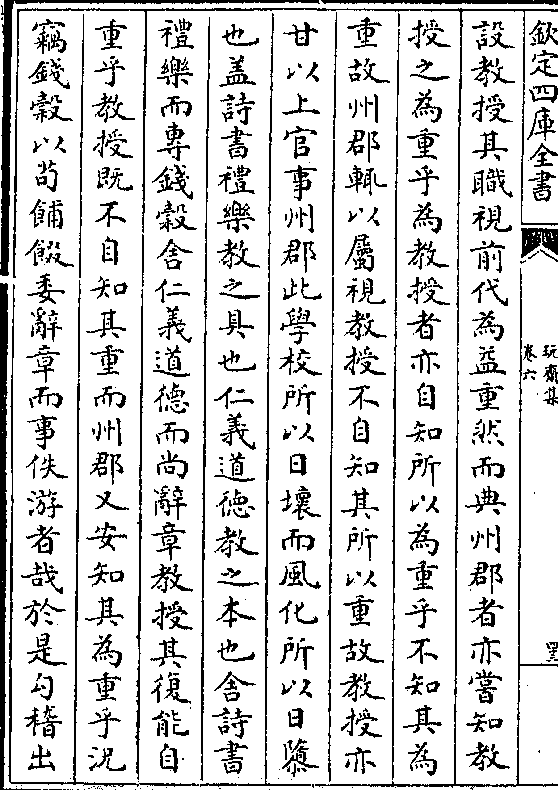 欽定四庫全書
玩齋集
卷六
設教授其職視前代為益重然而典州郡者亦嘗知教
授之為重乎為教授者亦自知所以為重乎不知其為
重故州郡輒以屬視教授不自知其所以重故教授亦
甘以上官事州郡此學校所以日壞而風化所以日隳
也盖詩書禮樂教之具也仁義道徳教之本也舍詩書
禮樂而専錢榖舍仁義道德而尚辭章教授其復能自
重乎教授既不自知其重而州郡又安知其為重乎況
竊錢榖以苟餔餟委辭章而事佚游者哉於是勾稽出